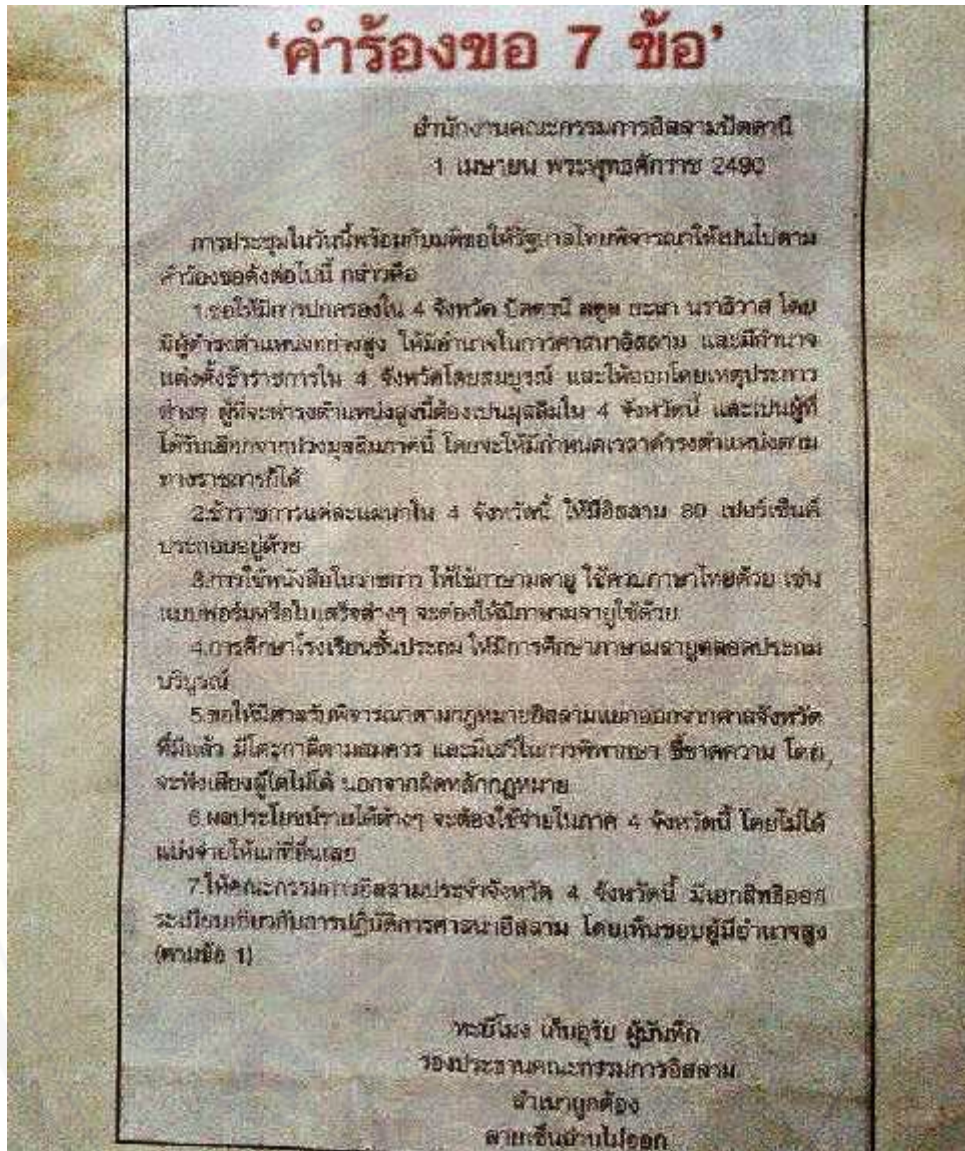 'คำร้องขอ 7 ข้อ'
สำนักงานคณะกรรมการอิสลามปัตตานี
1 เมษายน พระพุทธศักราช 2490
การประชุมในวันนี้พร้อมกับมติขอให้รัฐบาลไทยพิจารณาให้เป็นไปตาม
คำร้องขอดังต่อไปนี้ กล่าวคือ
1.ขอให้มีการปกครองใน 4 จังหวัด ปัตตานี สตูล ยะลา นราธิวาส โดย
มีผู้ดำรงตำแหน่งอย่างสูง ให้มีอำนาจในการศาสนาอิสลาม และมีอำนาจ
แต่งตั้งข้าราชการใน 4 จังหวัดโดยสมบูรณ์ และให้ออกโดยเหตุประการ
ต่างๆ ผู้ที่จะดำรงตำแหน่งสูงนี้ต้องเป็นมุสลิมใน 4 จังหวัดนี้ และเป็นผู้ที่
ได้รับเลือกจากปวงมุสลิมภาคนี้ โดยจะให้มีกำหนดเวลาดำรงตำแหน่งตาม
ทางราชการก็ได้
2.ข้าราชการแต่ละแผนกใน 4 จังหวัดนี้ ให้มีอิสลาม 80 เปอร์เซ็นต์
ประกอบอยู่ด้วย
3.การใช้หนังสือในราชการ ให้ใช้ภาษามลายู ใช้ควบภาษาไทยด้วย เช่น
แบบฟอร์มหรือใบเสร็จต่างๆ จะต้องให้มีภาษามลายูใช้ด้วย
4.การศึกษาโรงเรียนชั้นประถม ให้มีการศึกษาภาษามลายูตลอดประถม
บริบูรณ์
5.ขอให้มีศาลรับพิจารณาตามกฎหมายอิสลามแยกออกจากศาลจังหวัด
ที่มีแล้ว มีโต๊ะกาลีตามสมควร และมีเสรีในการพิพากษา ชี้ขาดความ โดย
จะฟังเสียงผู้ใดไม่ได้ นอกจากผิดหลักกฎหมาย
6.ผลประโยชน์รายได้ต่างๆ จะต้องใช้จ่ายในภาค 4 จังหวัดนี้ โดยไม่ได้
แบ่งจ่ายให้แก่ที่อื่นเลย
7.ให้คณะกรรมการอิสลามประจำจังหวัด 4 จังหวัดนี้ มีเอกสิทธิออก
ระเบียบเกี่ยวกับการปฏิบัติการศาสนาอิสลาม โดยเห็นชอบผู้มีอำนาจสูง
(ตามข้อ 1)
ผู้บันทึก
รองประธานคณะกรรมการอิสลาม
สำเนาถูกต้อง
ลายเซ็นอ่านไม่ออก